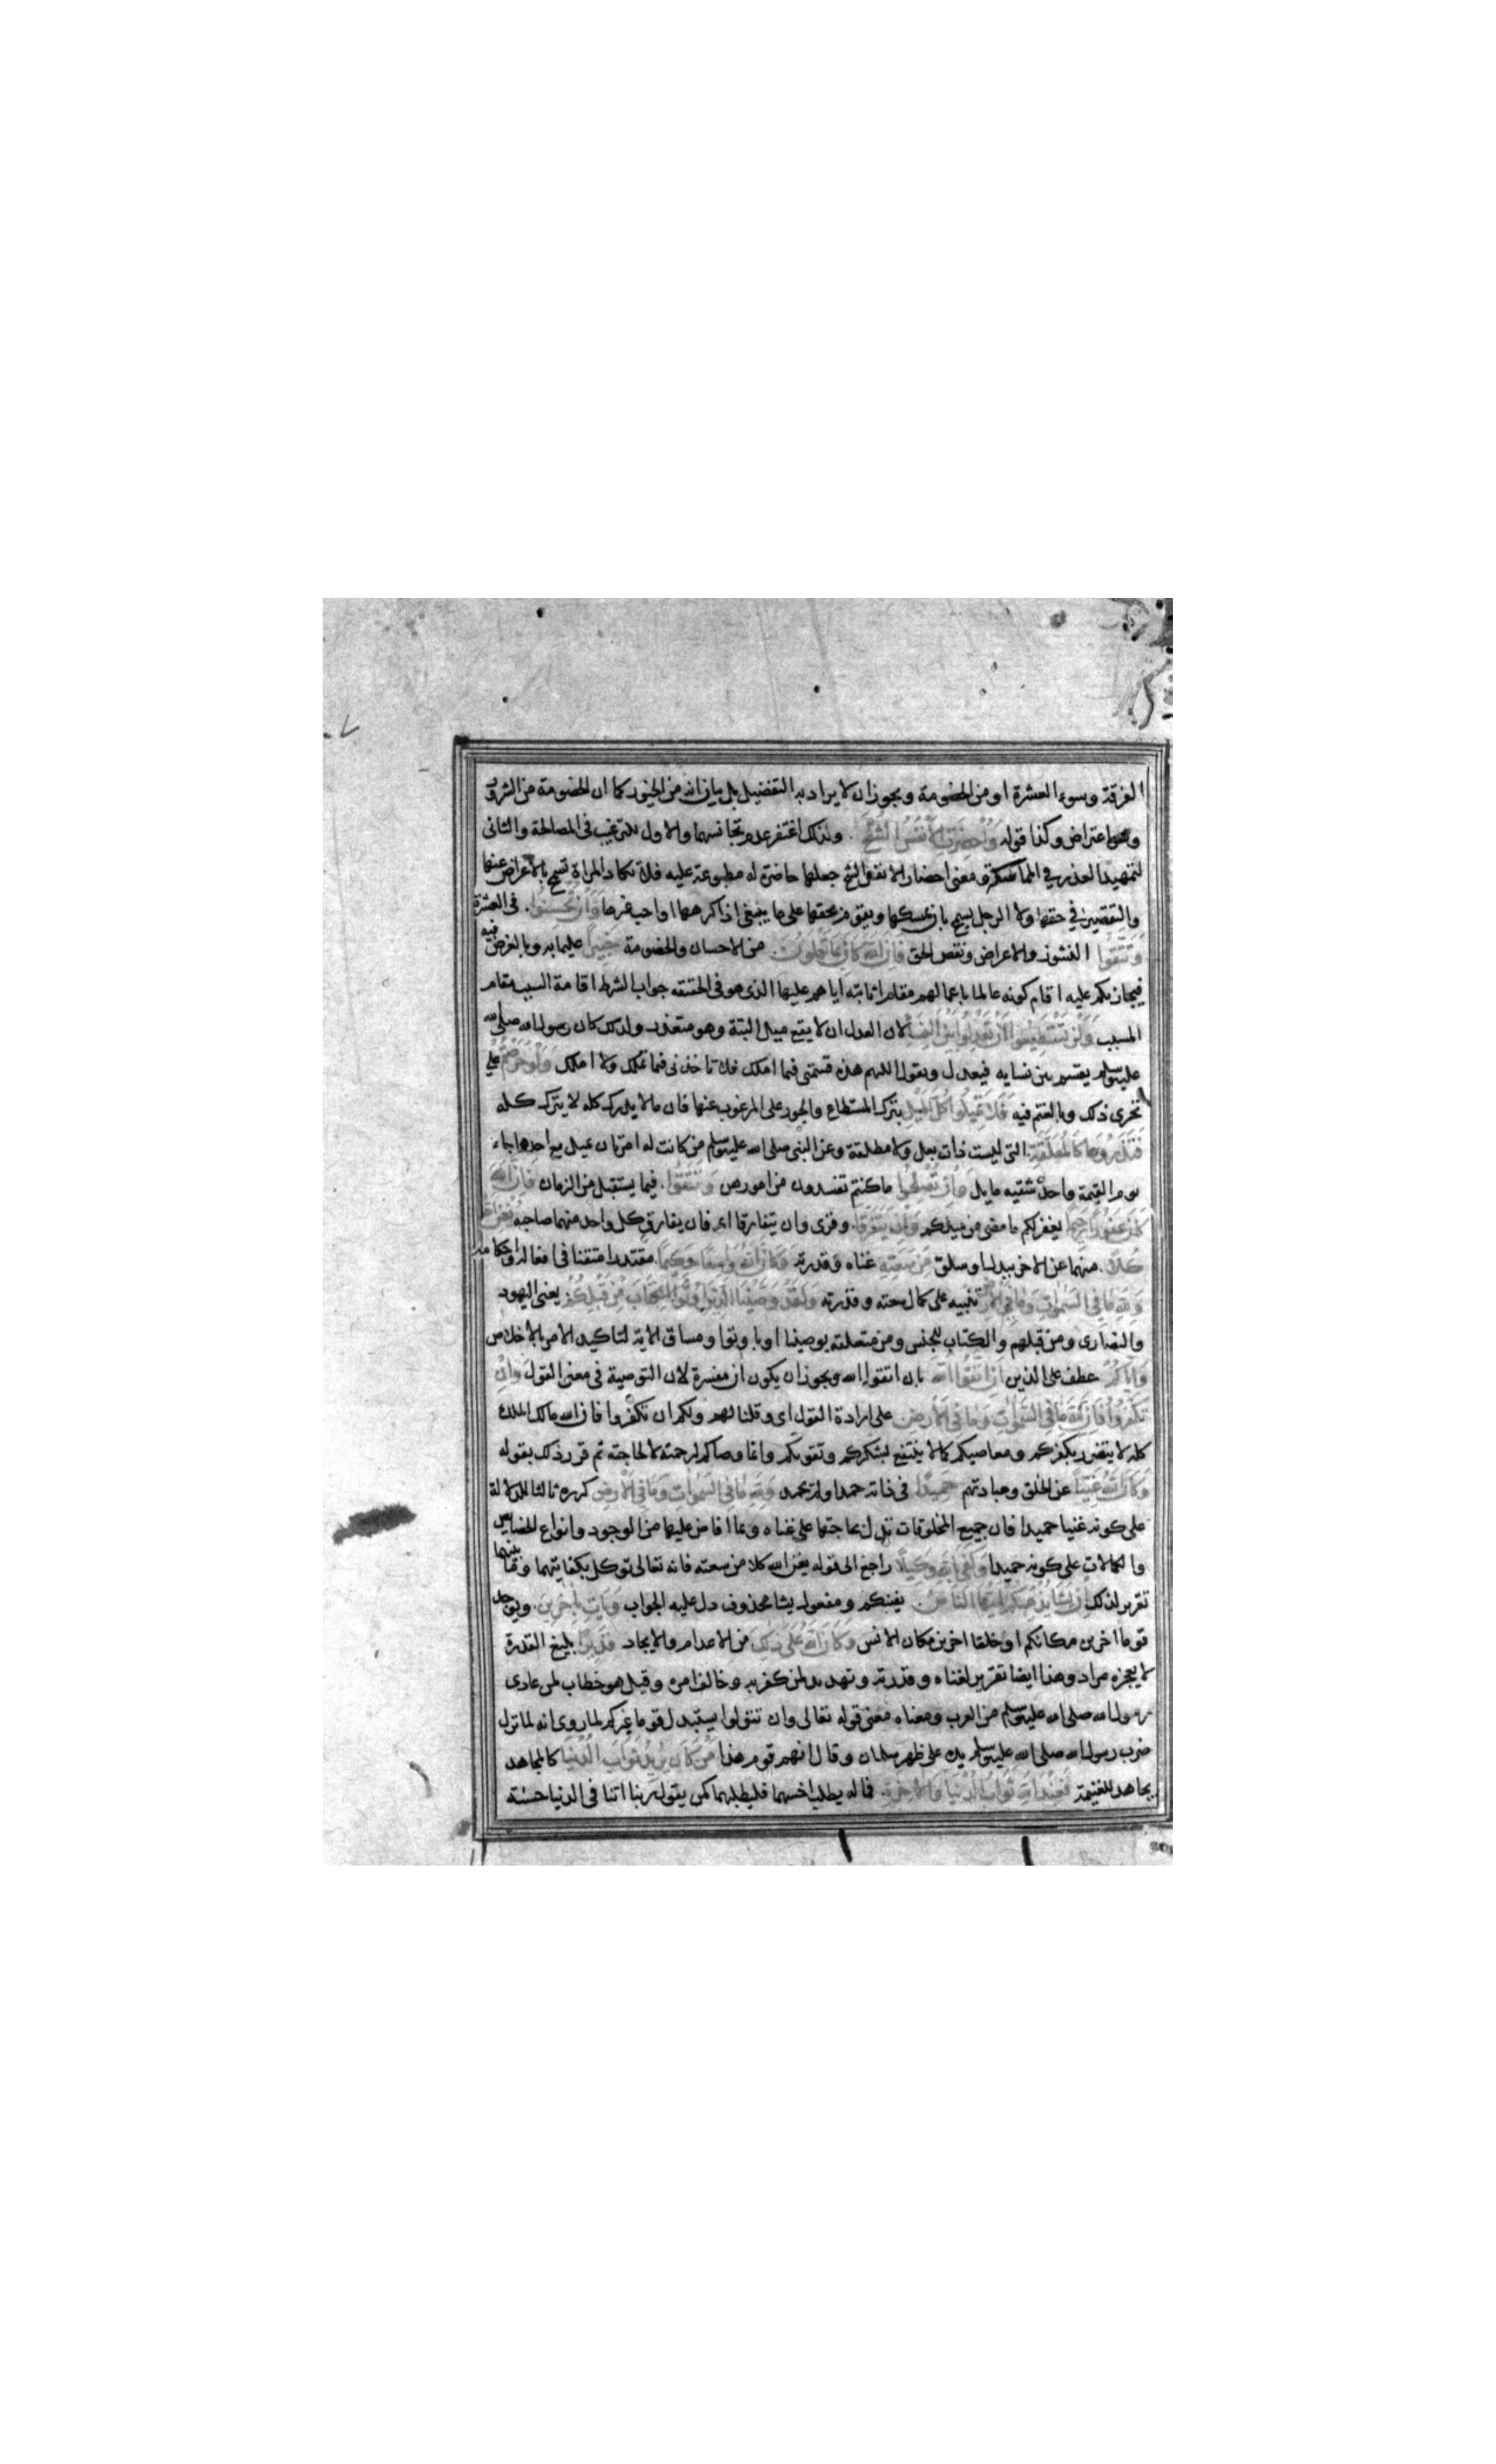 الفرقة وسوء العشرة او من الخصومة ويجوز ان لا يراد به التفضيل بل بيان انه من الخيور كما ان الخصومة من الشرور
وهو اعتراض وكذا قوله وَاُحْضِرَتِ الْاَنْفُسُ الشُّحَّ ولذلك اغتفر عدم تجانسهما والاول للترغيب فى المصالحة والثانى
لتمهيد العذر في المماكسة ومعنى احضار الانفس الشح جعلها حاضرة له مطبوعة عليه فلا تكاد المراة تسمح بالاعراض عنها
والتقصير في حقها ولا الرجل يسمح بان يمسكها ويقوم بحقها على ما ينبغى اذا كرهها او احب غيرها وَاِنْ تُحْسِنُوا فى العشرة
وَتَتَّقُوا النشوز والاعراض ونقص الحق فَاِنَّ اللّٰهَ كَانَ بِمَا تَعْمَلُونَ من الاحسان والخصومة خَبِيرًا عليما به وبالغرض فيه
فيجازيكم عليه اقام كونه عالما باعمالهم مقام اثابته اياهم عليها الذى هو فى الحقيقه جواب الشرط اقامة السبب مقام
المسبب وَلَنْ تَسْتَطِيعُوا اَنْ تَعْدِلُوا بَيْنَ النِّسَاءِ لان العدل ان لا يقع ميل البتة وهو متعذر ولذلك كان رسول الله صلى الله
عليه وسلم يقسم بين نسايه فيعدل ويقول اللهم هذه قسمتى فيما املك فلا تاخذنى فيما تملك ولا املك وَلَوْ حَرَصْتُمْ على
تحرى ذلك وبالغتم فيه فَلَا تَمِيلُوا كُلَّ الْمَيْلِ بترك المستطاع والجور على المرغوب عنها فان ما لا يدرك كله لا يترك كله
فَتَذَرُوهَا كَالْمُعَلَّقَةِ التى ليست ذات بعل ولا مطلقة وعن النبى صلى الله عليه وسلم من كانت له امرتان يميل مع احديهما جاء
يوم القيمة واحد شقيه مايل وَاِنْ تُصْلِحُوا ما كنتم تفسدون من امورهن وَتَتَّقُوا فيما يستقبل من الزمان فَاِنَّ اللّٰهَ
كَانَ غَفُورًا رَحِيمًا يغفر لكم ما مضى من ميلكم وَاِنْ يَتَفَرَّقَا وقرى وان يتفارقا اى فان يفارق كل واحد منهما صاحبه يُغْنِ اللّٰهُ
كُلًّا منهما عن الاخر ببدل او سلو مِنْ سَعَتِهِ غناه وقدرته وَكَانَ اللّٰهُ وَاسِعًا حَكِيمًا مقتدرا متقنا فى افعاله واحكامه
وَلِلّٰهِ مَا فِي السَّمٰوَاتِ وَمَا فِي الْاَرْضِ تنبيه على كمال سعته وقدرته وَلَقَدْ وَصَّيْنَا الَّذِينَ اُوتُوا الْكِتَابَ مِنْ قَبْلِكُمْ يعنى اليهود
والنصارى ومن قبلهم والكتاب للجنس ومن متعلقة بوصينا او باوتوا ومساق الاية لتاكيد الامر بالاخلاص
وَاِيَّاكُمْ عطف على الذين اَنِ اتَّقُوا اللّٰهَ بان اتقوا الله ويجوز ان يكون ان مفسرة لان التوصية فى معنى القول وَاِنْ
تَكْفُرُوا فَاِنَّ لِلّٰهِ مَا فِي السَّمٰوَاتِ وَمَا فِي الْاَرْضِ على ارادة القول اى وقلنا لهم ولكم ان تكفروا فان الله مالك الملك
كله لا يتضرر بكفركم ومعاصيكم كما لا ينتفع بشكركم وتقويكم وانما وصاكم لرحمته لا لحاجته ثم قرر ذلك بقوله
وَكَانَ اللّٰهُ غَنِيًّا عن الخلق وعبادتهم حَمِيدًا فى ذاته حمد او لم يحمد وَلِلّٰهِ مَا فِي السَّمٰوَاتِ وَمَا فِي الْاَرْضِ كرره ثالثا للدلالة
على كونه غنيا حميدا فان جميع المخلوقات تدل بحاجتها على غناه وبما افاض عليها من الوجود وانواع الخصايص
والكمالات على كونه حميدا وَكَفَى بِاللّٰهِ وَكِيلًا راجع الى قوله يغن الله كلا من سعته فانه تعالى توكل بكفايتهما وما بينهما
تقرير لذلك اِنْ يَشَأْ يُذْهِبْكُمْ اَيُّهَا النَّاسُ يفنيكم ومفعول يشا محذوف دل عليه الجواب وَيَأْتِ بِاٰخَرِينَ ويوجد
قوما اخرين مكانكم او خلقا اخرين مكان الانس وَكَانَ اللّٰهُ عَلَى ذٰلِكَ من الاعدام والايجاد قَدِيرًا بليغ القدرة
لا يعجزه مراد وهذا ايضا تقرير لغناه وقدرته وتهديد لمن كفر به وخالف امره وقيل هو خطاب لمن عادى
رسول الله صلى الله عليه وسلم من العرب ومعناه معنى قوله تعالى وان تتولوا يستبدل قوما غيركم لما روى انه لما نزل
ضرب رسول الله صلى الله عليه وسلم يده على ظهر سلمان وقال انهم قوم هذا مَنْ كَانَ يُرِيدُ ثَوَابَ الدُّنْيَا كالمجاهد
يجاهد للغنيمة فَعِنْدَ اللّٰهِ ثَوَابُ الدُّنْيَا وَالْاٰخِرَةِ فما له يطلب اخسهما فليطلبهما كمن يقول ربنا اتنا فى الدنيا حسنة